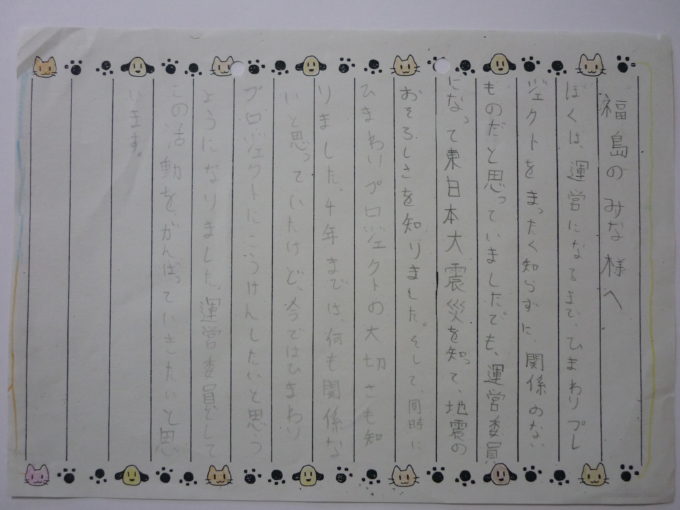 福島のみな様へ
ぼくは、運営になるまで、ひまわりプレ
ジェクトをまったく知らずに関係のない
ものだと思っていましたでも、運営委員
になって東日本大震災を知って、地震の
おそろしさを知りました。そして、同時に
ひまわりプロジェクトの大切さも知
りました、4年までは、何も関係な
いと思っていたけど、今ではひまわり
プロジェクトにこうけんしたいと思う
ようになりました、運営委員として
この活動を、がんばっていきたいと思
ります。